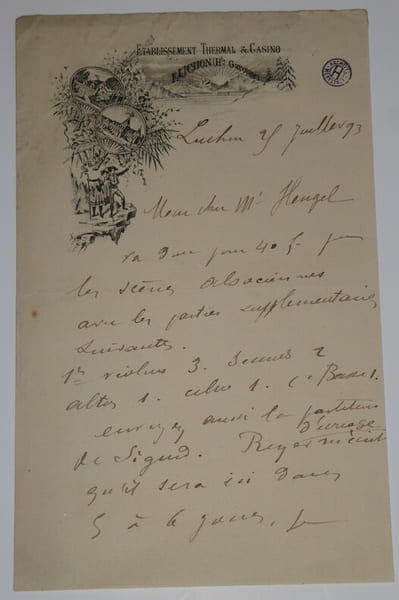 ETABLISSEMENT THERMAL & CASINO
LUCHON (Hte GARONNE)
Luchon 25 Juillet 93
Mon cher Mr Heugel
va donc pour 40 f. pour
les scènes alsaciennes
avec les parties supplémentaires
suivantes.
1rs violons 3. Seconds 2
altos 1. cellos 1. C. Basse 1.
envoyez aussi la partition
d'orage
de Sigurd. Reyer m'écrit
qu'il sera ici dans
5 à 6 jours,